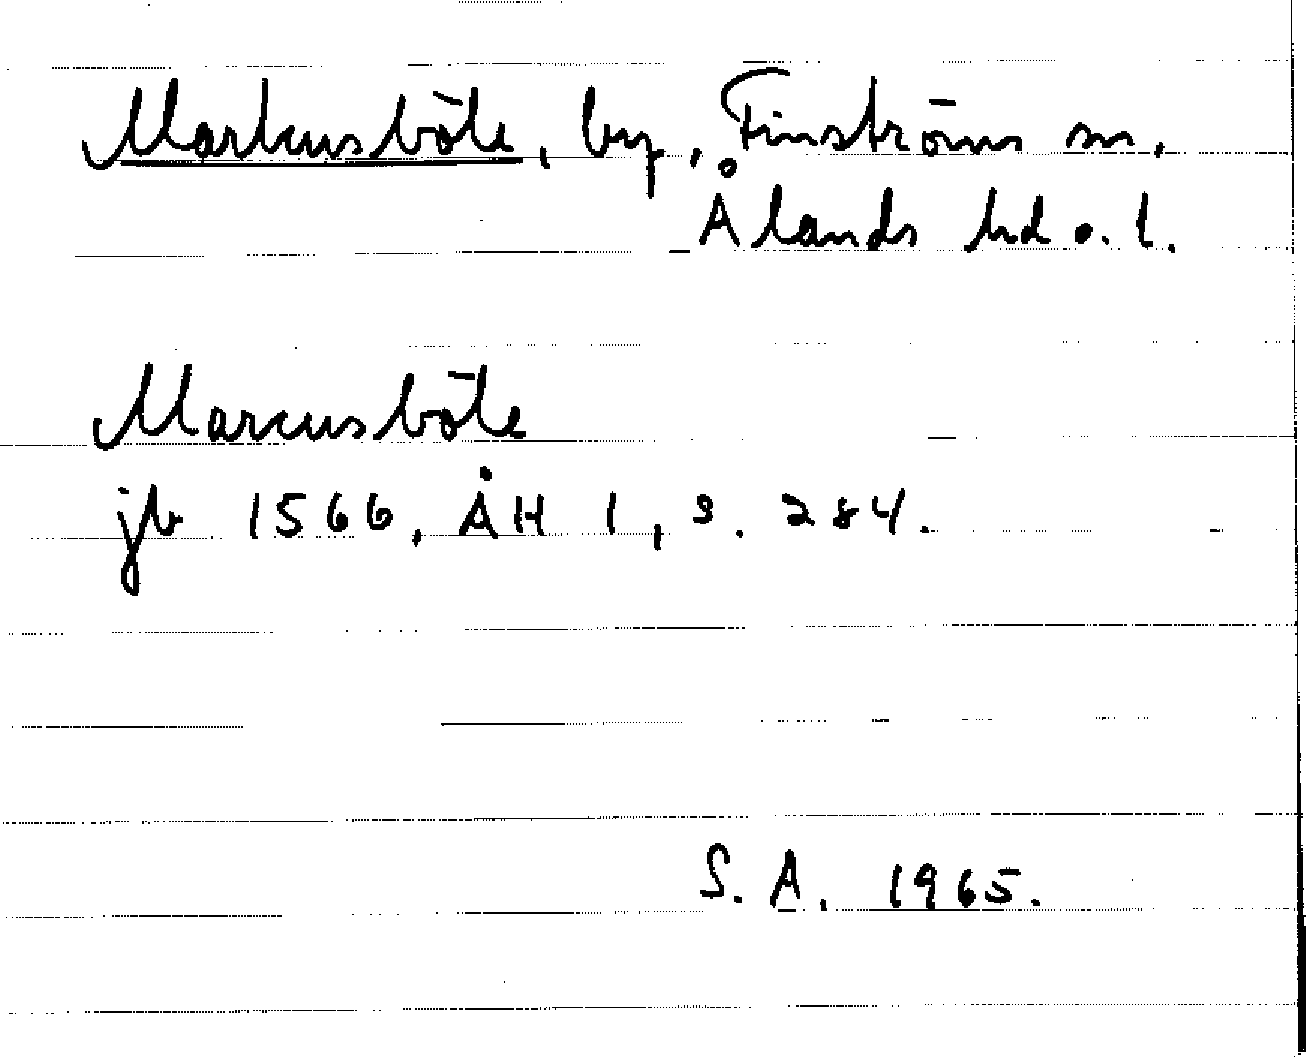 Markusböle, by, Finströms sn,
Ålands hd o. l.
Marcusböle
jb 1566, ÅH 1, s. 284.
S. A. 1965.